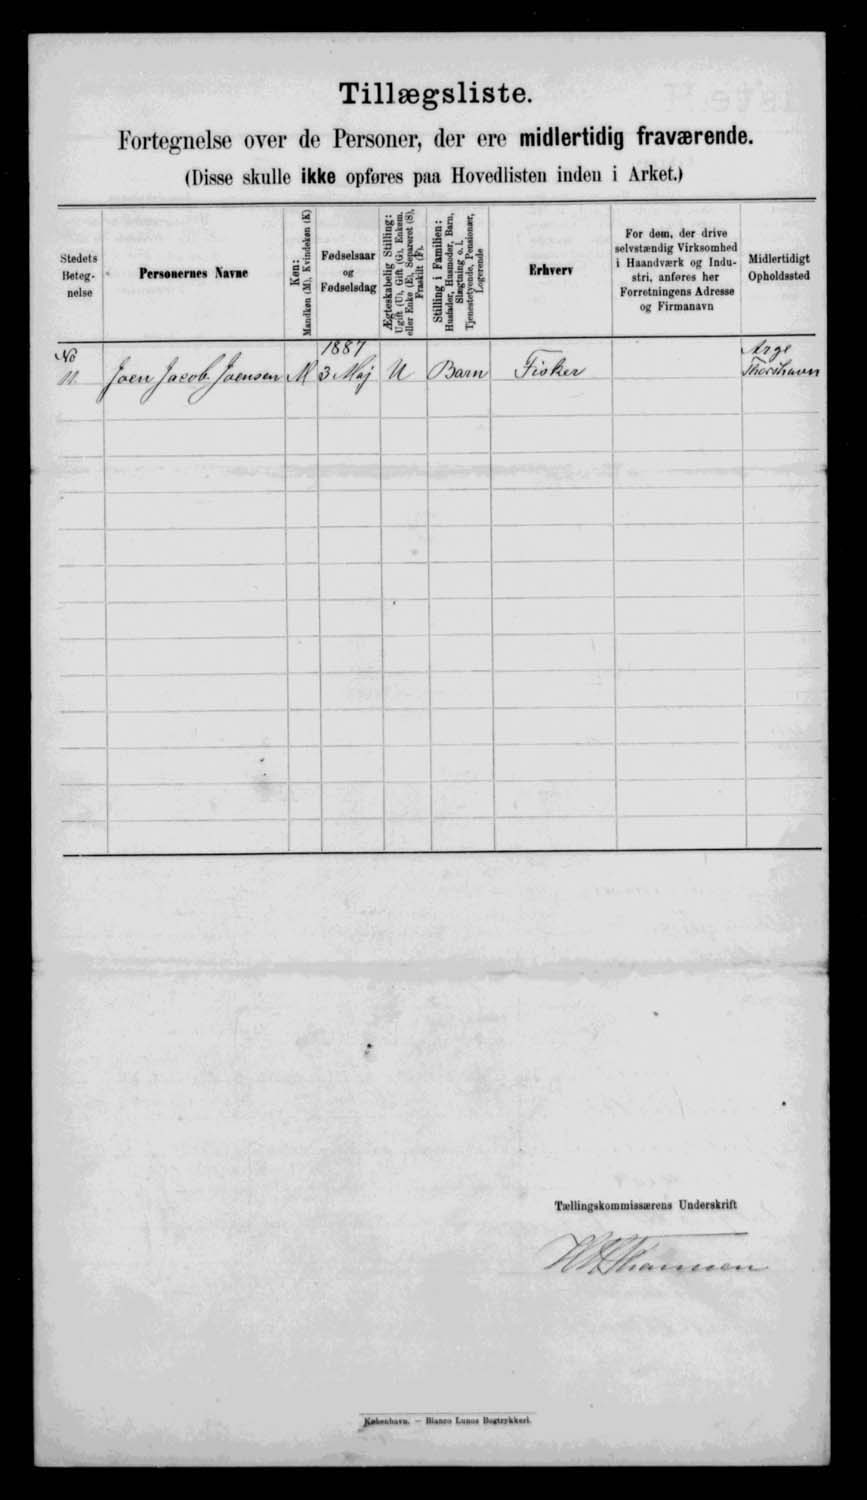 Tillægsliste.
Fortegnelse over de Personer, der ere midlertidig fraværende.
(Disse skulle ikke opføres paa Hovedlisten inden i Arket.)
Stedets
Beteg-
nelse
Personernes Navne
Køn:
Mandkøn (M), Kvindekøn (K)
Fødselsaar
og
Fødselsdag
Ægteskabelig Stilling:
Ugift (U), Gift (G), Enkem.
eller Enke (E), Separeret (S),
Fraskilt (F).
Stilling i Familien:
Husfader, Husmoder, Barn,
Slægtning o. l.
Tjenestetyende, Pensionær,
Logerende
Erhverv
For dem, der drive
selvstændig Virksomhed
i Haandværk og Indu-
stri, anføres her
Forretningens Adresse
og Firmanavn
Midlertidigt
Opholdssted
No 1887 Arge
11. Joen Jacob Joensen M 3 Maj U Barn Fisker Thorshavn
Tællingskommissærens Underskrift
København. — Bianco Lunos Bogtrykkeri.